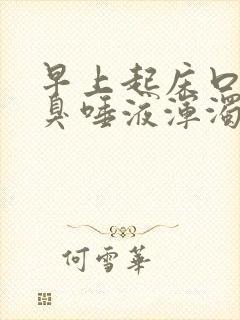 早上起床口
臭唾液浑浊
何雪華